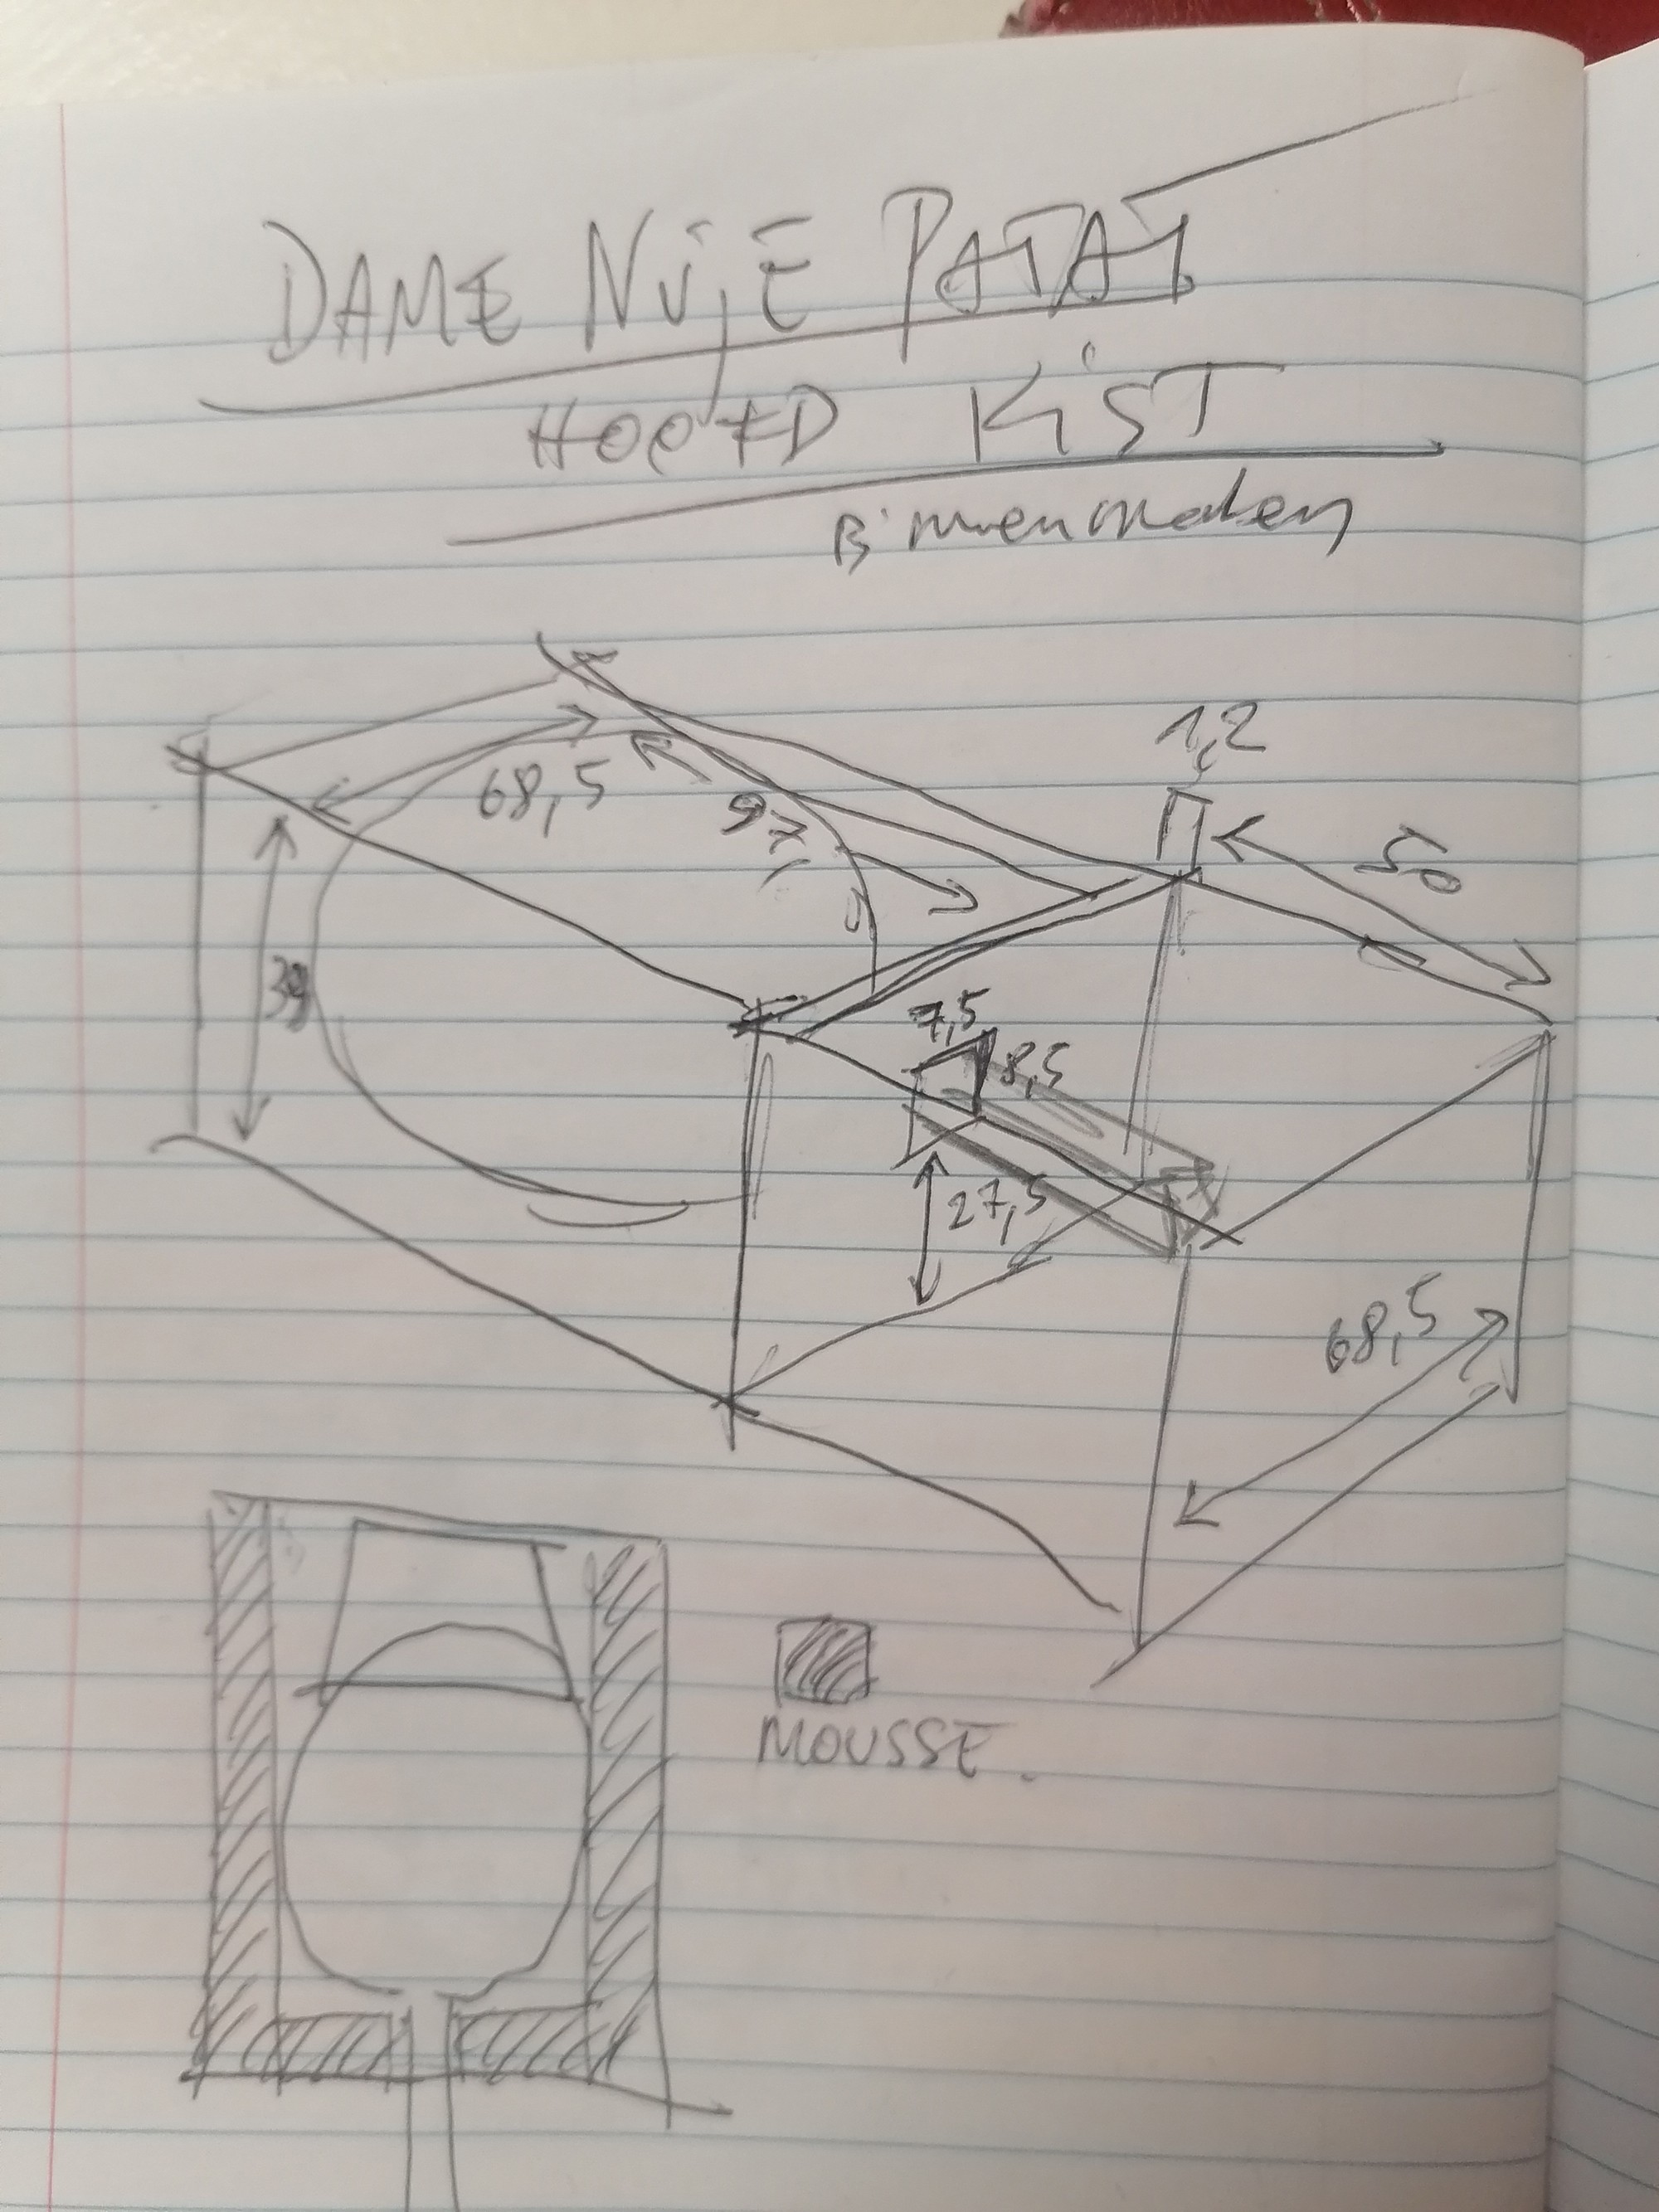 DAME NUJE PATAT
HOOFD KIST
Binnenmaten
1,2
68,5
97
50
39
7,5
8,5
27,5
68,5
MOUSSE.